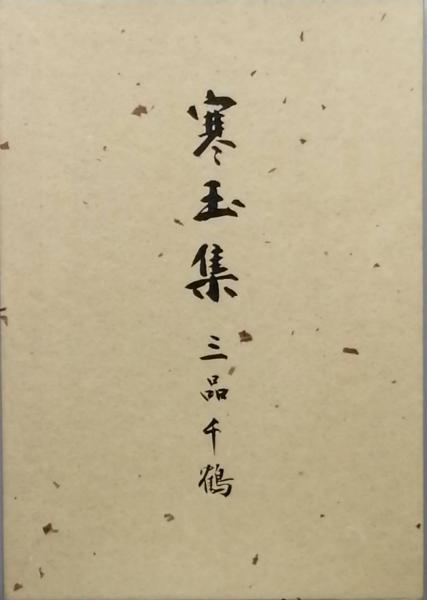 寒玉集 三品千鶴